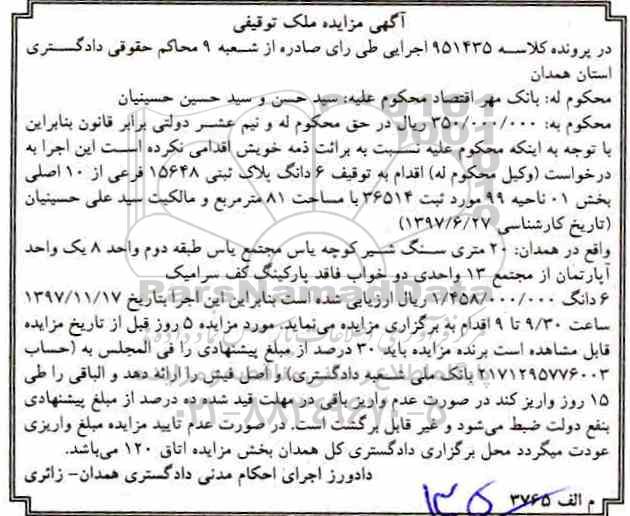 آگهی مزایده ملک توقیفی
در پرونده کلاسه ۹۵۱۴۳۵ اجرایی طی رای صادره از شعبه ۹ محاکم حقوقی دادگستری
استان همدان
محکوم له: بانک مهر اقتصاد محکوم علیه: سید حسن و سید حسین حسینیان
محکوم به: ۳۵۰/۰۰۰/۰۰۰ ریال در حق محکوم له و نیم عشر دولتی برابر قانون بنابراین
با توجه به اینکه محکوم علیه نسبت به برائت ذمه خویش اقدامی نکرده است این اجرا به
درخواست (وکیل محکوم له) اقدام به توقیف ۶ دانگ پلاک ثبتی ۱۵۶۴۸ فرعی از ۱۰ اصلی
بخش ۰۱ ناحیه ۹۹ مورد ثبت ۳۶۵۱۴ با مساحت ۸۱ مترمربع و مالکیت سید علی حسینیان
(تاریخ کارشناسی ۱۳۹۷/۶/۲۷)
واقع در همدان: ۲۰ متری سنگ شیر کوچه یاس مجتمع یاس طبقه دوم واحد ۸ یک واحد
آپارتمان از مجتمع ۱۳ واحدی دو خواب فاقد پارکینگ کف سرامیک
۶ دانگ ۱/۴۵۸/۰۰۰/۰۰۰ ریال ارزیابی شده است بنابراین این اجرا بتاریخ ۱۳۹۷/۱۱/۱۷
ساعت ۹/۳۰ تا ۹ اقدام به برگزاری مزایده می‌نماید. مورد مزایده ۵ روز قبل از تاریخ مزایده
قابل مشاهده است برنده مزایده باید ۳۰ درصد از مبلغ پیشنهادی را فی المجلس به (حساب
۲۱۷۱۲۹۵۷۷۶۰۰۳ بانک ملی شعبه دادگستری) و اصل فیش را ارائه دهد و الباقی را طی
۱۵ روز واریز کند در صورت عدم واریز باقی در مهلت قید شده ده درصد از مبلغ پیشنهادی
بنفع دولت ضبط می‌شود و غیر قابل برگشت است. در صورت عدم تایید مزایده مبلغ واریزی
عودت میگردد محل برگزاری دادگستری کل همدان بخش مزایده اتاق ۱۲۰ می‌باشد.
دادورز اجرای احکام مدنی دادگستری همدان- زائری
م الف ۳۷۶۵
ParsNamadData